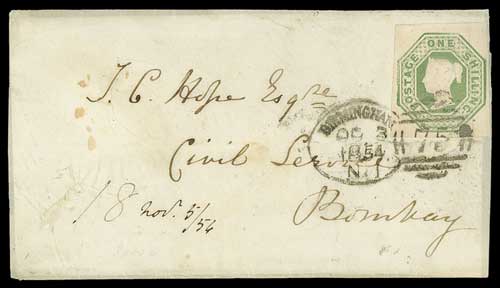 POSTAGE ONE SHILLING
T. C. Hope Esqre
BIRMINGHAM
OC 3
1854
N. 1
75
Civil Service
18 nov. 5/54
Bombay